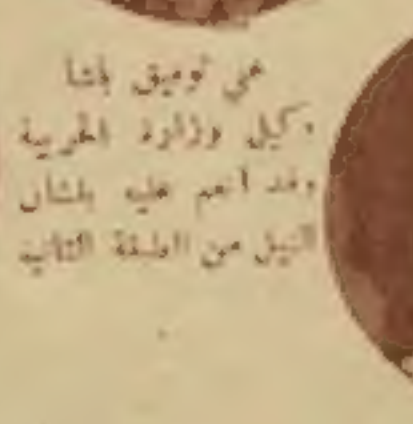 توفيق باشا
وكيل وزارة الحربية
وقد أنعم عليه بنشان
النيل من الطبقة الثانية